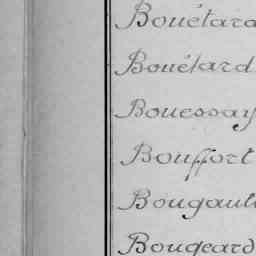 Bouétard
Bouétard
Bouessay
Bouffort
Bougault
Bougeard